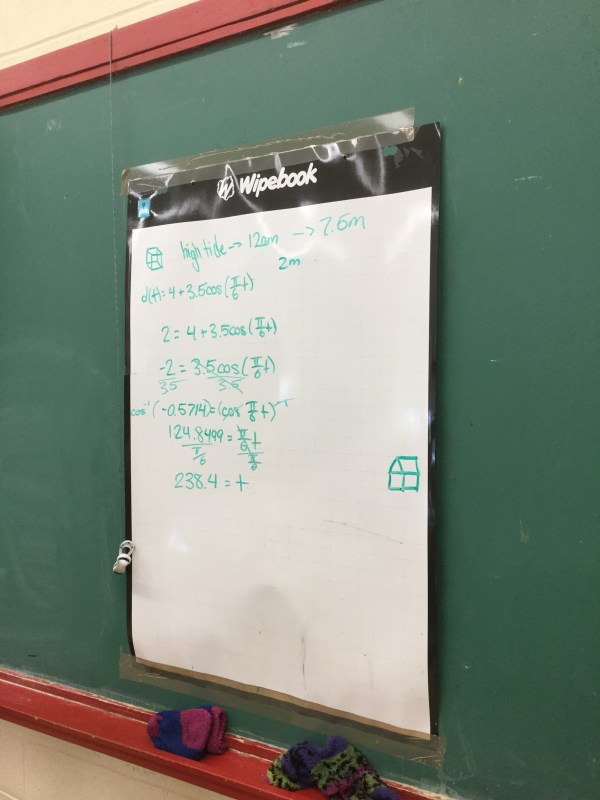 Wipebook
high tide → 12am → 7.5m
2m
d(t)=4+3.5cos(π/6 t)
2=4+3.5cos(π/6 t)
-2=3.5cos(π/6 t)
3.5 3.5
cos⁻¹(-0.5714)=(cos π/6 t)⁻¹
124.8499=π/6 t
π/6 π/6
238.4=t